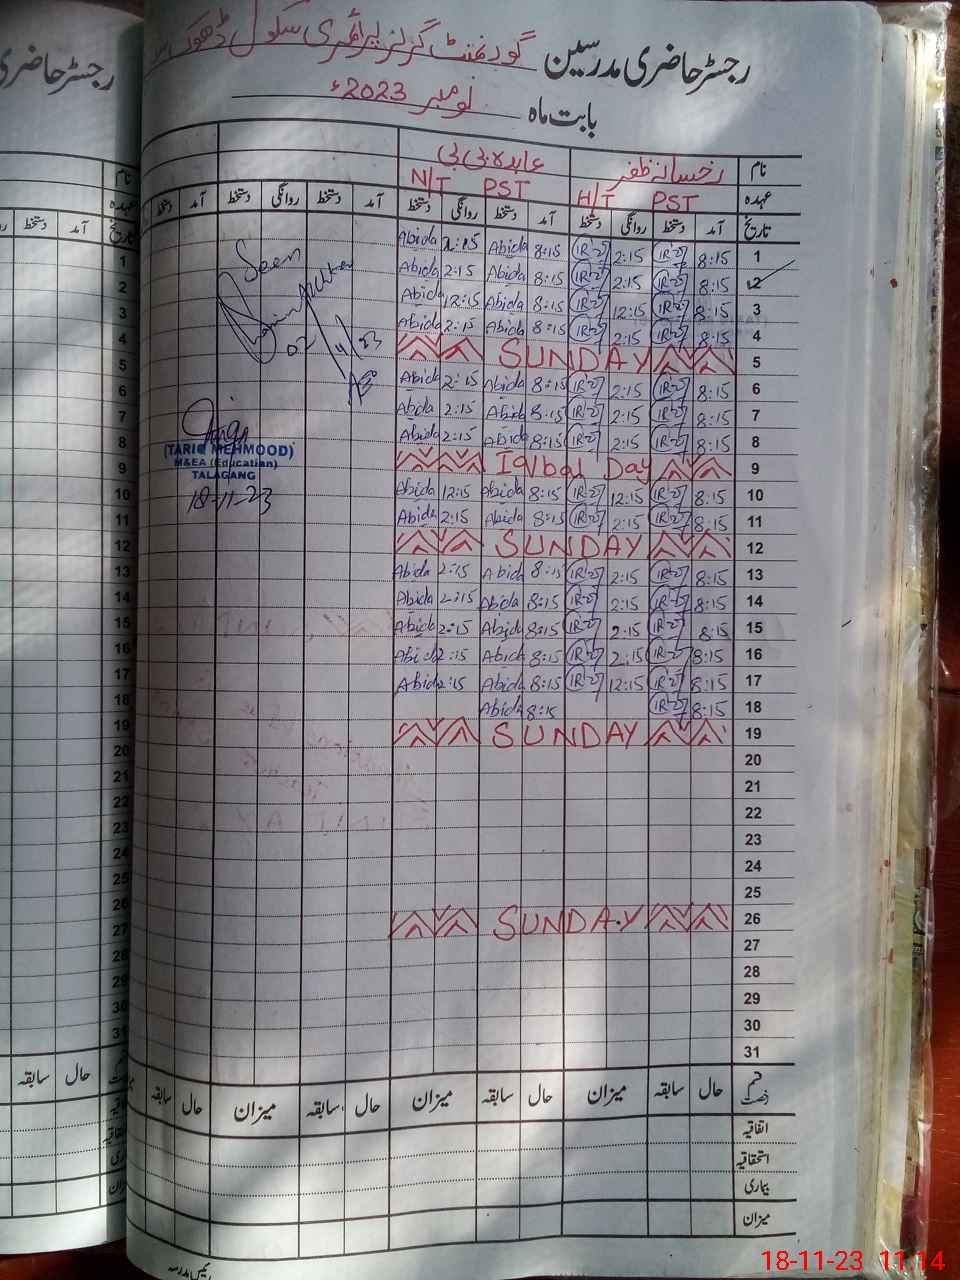 رجسٹر حاضری مدرسین گورنمنٹ گرلز پرائمری سکول ڈھوک
بابت ماہ نومبر 2023ء
نام رخسانہ ظفر عابدہ بی بی
عہدہ H/T PST N/T PST
تاریخ آمد دستخط روانگی دستخط آمد دستخط روانگی دستخط آمد دستخط روانگی دستخط آمد دستخط
1 8:15 2:15 8:15 Abida 2:15 Abida
2 8:15 2:15 8:15 Abida 2:15 Abida
3 8:15 12:15 8:15 Abida 12:15 Abida
4 8:15 2:15 8:15 Abida 2:15 Abida
5 SUNDAY
6 8:15 2:15 8:15 Abida 2:15 Abida
7 8:15 2:15 8:15 Abida 2:15 Abida
8 8:15 2:15 8:15 Abida 2:15 Abida
9 Iqbal Day
10 8:15 12:15 8:15 Abida 12:15 Abida
11 8:15 2:15 8:15 Abida 2:15 Abida
12 SUNDAY
13 8:15 2:15 8:15 Abida 2:15 Abida
14 8:15 2:15 8:15 Abida 2:15 Abida
15 8:15 2:15 8:15 Abida 2:15 Abida
16 8:15 2:15 8:15 Abida 2:15 Abida
17 8:15 12:15 8:15 Abida 2:15 Abida
18 8:15 8:15 Abida
19 SUNDAY
20
21
22
23
24
25
26 SUNDAY
27
28
29
30
31
Seen
(TARIQ MEHMOOD)
M&EA (Education)
TALAGANG
18-11-23
قسم رخصت حال سابقہ میزان حال سابقہ میزان حال سابقہ میزان حال سابقہ
اتفاقیہ
استحقاقیہ
بیماری
میزان
رئیس مدرسہ
رجسٹر حاضری
نام
عہدہ
تاریخ آمد دستخط
حال سابقہ
18-11-23 11:14